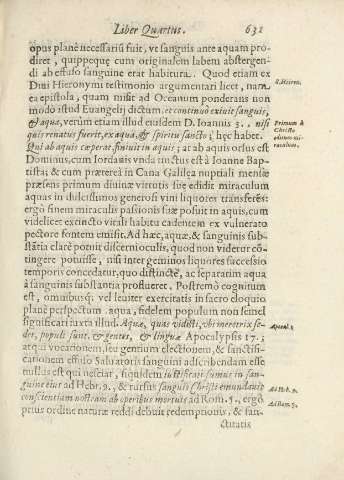 Liber Quartus. 631
opus planè necessariũ fuit, vt sanguis ante aquam pro-
diret, quippequę cum originalem labem abstergen-
di ab effuso sanguine erat habitura. Quod etiam ex
Diui Hieronymi testimonio argumentari licet, nam
ea epistola, quam misit ad Oceanum ponderans non
modò istud Euangelij dictum, et continuò exiuit sanguis,
& aqua, verùm etiam illud eiusdem D. Ioannis 3. nisi
quis renatus fuerit, ex aqua, & spiritu sancto; hęc habet.
Qui ab aquis cœperat, finiuit in aquis; ar ab aquis orsus est
Dominus, cum Iordanis vnda tinctus est à Ioanne Bap-
tista; & cum prætereà in Cana Galilęa nuptiali mensæ
præsens primum diuinæ virtutis suæ edidit miraculum
aquas in dulcissimos generosi vini liquores transferẽs:
ergò finem miraculis passionis suæ posuit in aquis, cum
videlicet extincto vitali habitu cadentem ex vulnerato
pectore fontem emisit. Ad hæc, aquæ, & sanguinis sub-
stãtia clarè potuit discerni oculis, quod non videtur cõ-
tingere potuisse, nisi inter geminos liquores successio
temporis concedatur, quo distinctè, ac separatim aqua
à sanguinis substantia proflueret. Postremò cognitum
est, omnibusq; vel leuiter exercitatis in sacro eloquio
planè perspectum aqua, fidelem populum non semel
significari iuxta illud. Aquæ, quas vidisti, vbi meretrix se-
det, populi sunt, & gentes, & linguæ Apocalypsis 17.;
atqui vocationem, seu gentium electionem, & sanctifi-
cationem effuso Saluatoris sanguini adscribendam esse
nullus est qui nesciat, siquidem iustificati sumus in san-
guine eius ad Hebr. 9., & rursus sanguis Christi emundauit
conscientiam nostram ab operibus mortuis ad Rom. 5., ergò
priùs ordine naturæ reddi debuit redemptionis, & san-
ctitatis
S. Hieron.
Primum &
Christi
miraculum.
Apocal.
Ad Heb. 9.
Ad Rom. 5.